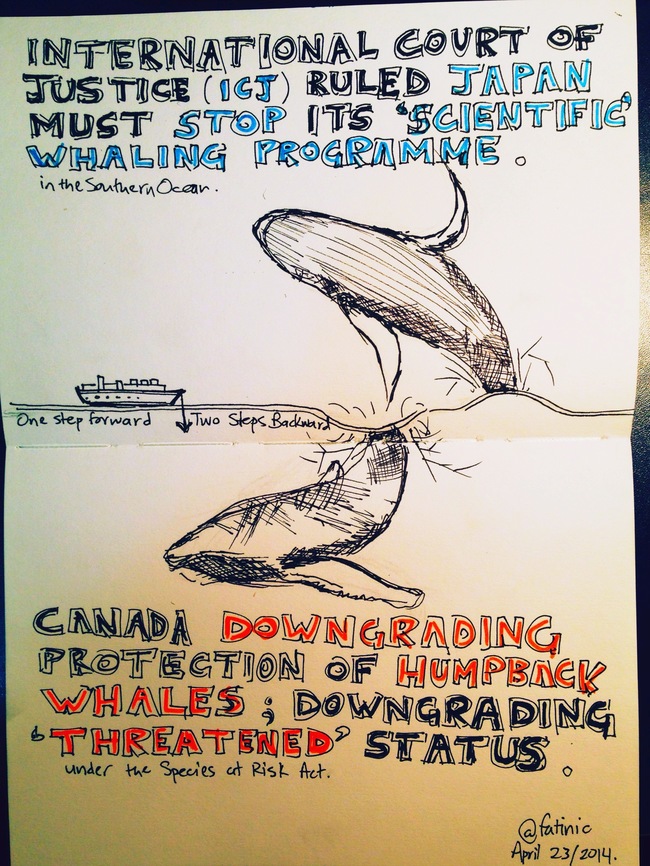 INTERNATIONAL COURT OF
JUSTICE (ICJ) RULED JAPAN
MUST STOP ITS 'SCIENTIFIC'
WHALING PROGRAMME.
in the Southern Ocean.
One step forward
Two Steps Backward
CANADA DOWNGRADING
PROTECTION OF HUMPBACK
WHALES; DOWNGRADING
'THREATENED' STATUS.
under the Species at Risk Act.
@fatinic
April 23/2014.